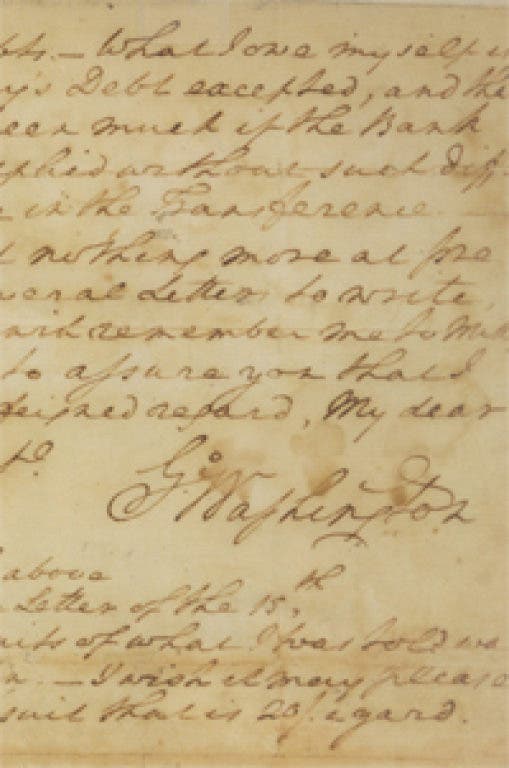 — What I owe myself
Debt excepted, and the
been much if the Bank
without such diff
in the Transference. —
nothing more at pre
several Letters to write,
remember me to
to assure you that I
regard, My dear
G:o Washington
above
Letter of the 15.th
of what I was told
— I wish it may please
suit that is 20/. a yard.